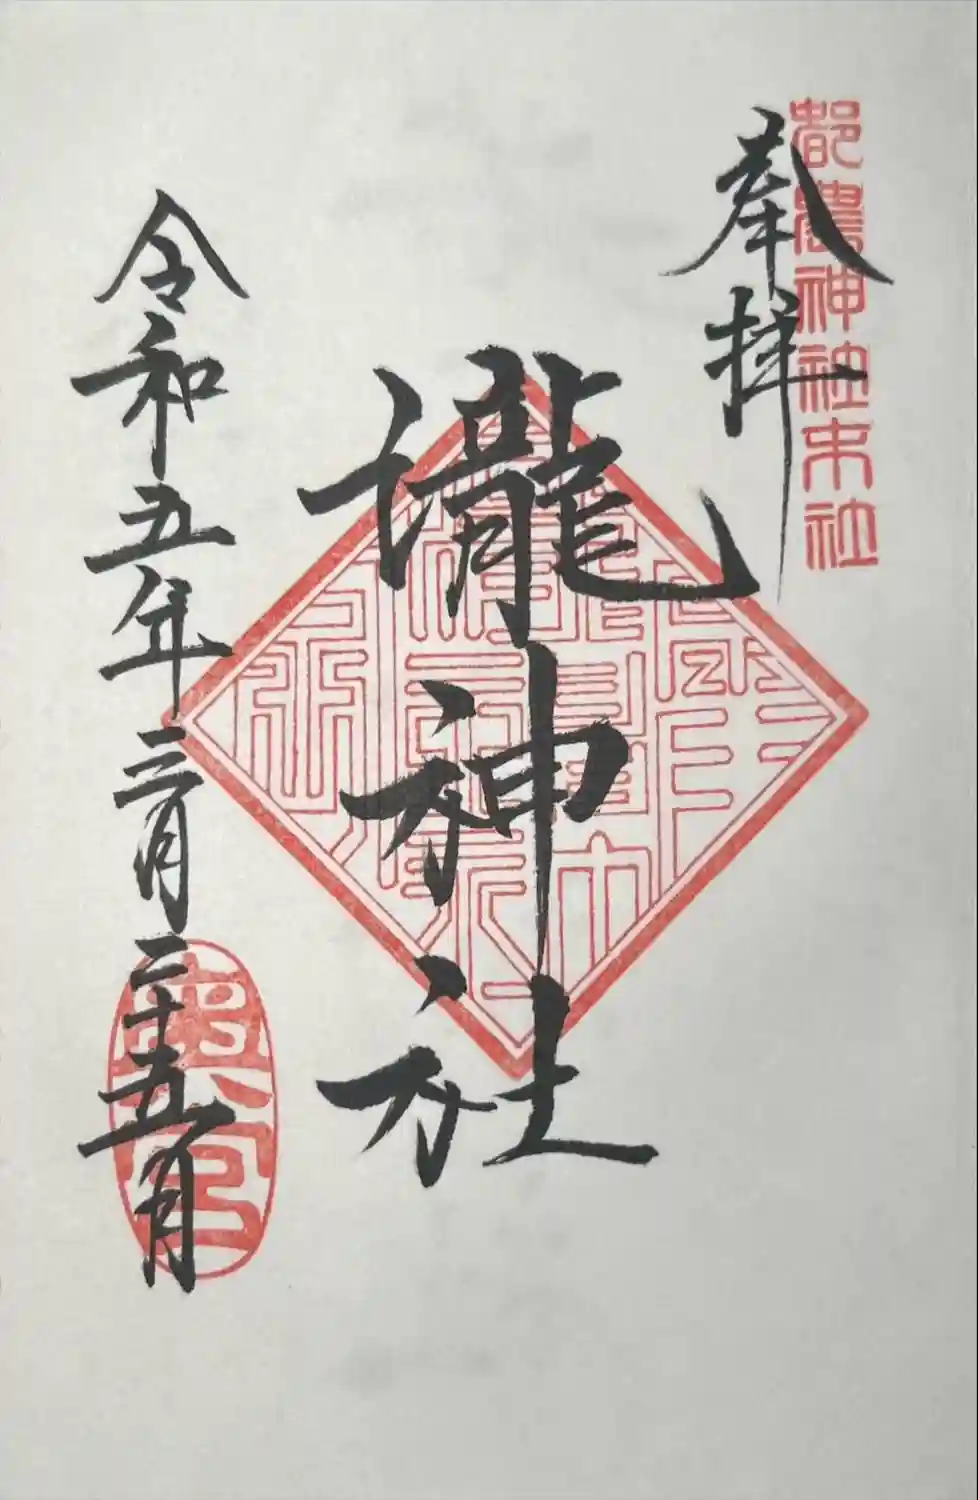 都農神社末社
奉拝
瀧神社
令和五年三月二十五日